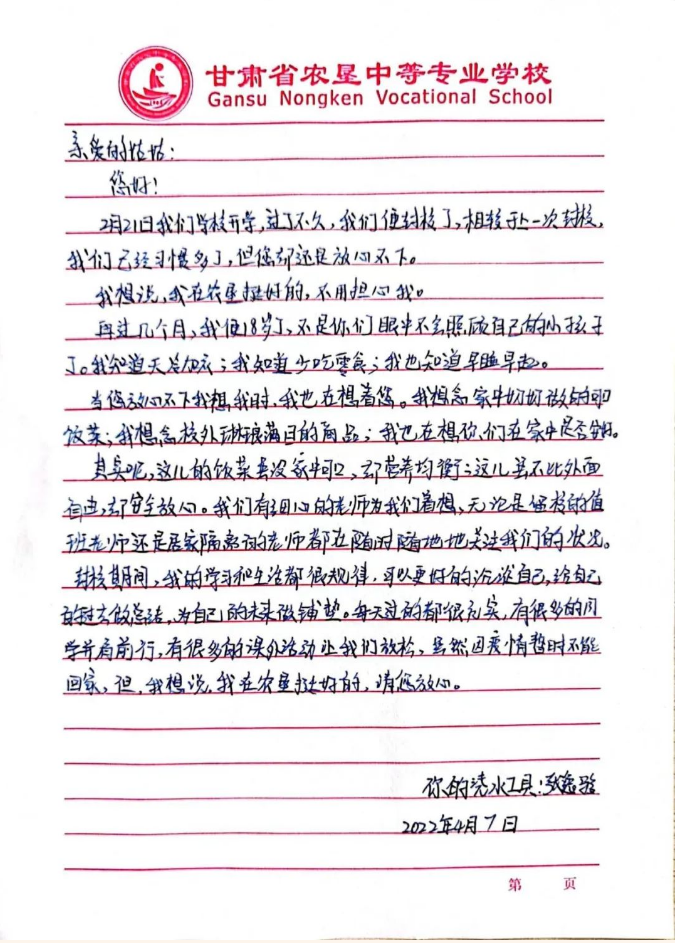 甘肃省农垦中等专业学校
Gansu Nongken Vocational School
亲爱的姑姑：
您好！
2月21日我们学校开学，过了不久，我们便封校了，相较于上一次封校，
我们已经习惯多了，但您却还是放心不下。
我想说，我在农垦挺好的，不用担心我。
再过几个月，我便18岁了，不是你们眼中不会照顾自己的小孩子
了。我知道天冷加衣；我知道少吃零食；我也知道早睡早起。
当您放心不下我想我时，我也在想着您。我想念家中奶奶做的可口
饭菜；我想念校外琳琅满目的商品；我也在想你们在家中是否安好。
其实呢，这儿的饭菜虽没家中可口，却营养均衡；这儿虽不比外面
自由，却安全放心。我们有细心的老师为我们着想，无论是留校的值
班老师还是居家隔离的老师都在随时随地地关注我们的状况。
封校期间，我的学习和生活都很规律，可以更好的沉淀自己，给自己
的过去做总结，为自己的未来做铺垫。每天过的都很充实，有很多的同
学并肩前行，有很多的课外活动让我们放松，虽然因疫情暂时不能
回家，但，我想说，我在农垦挺好的，请您放心。
你的浇水工具：张
2022年4月7日
第 页